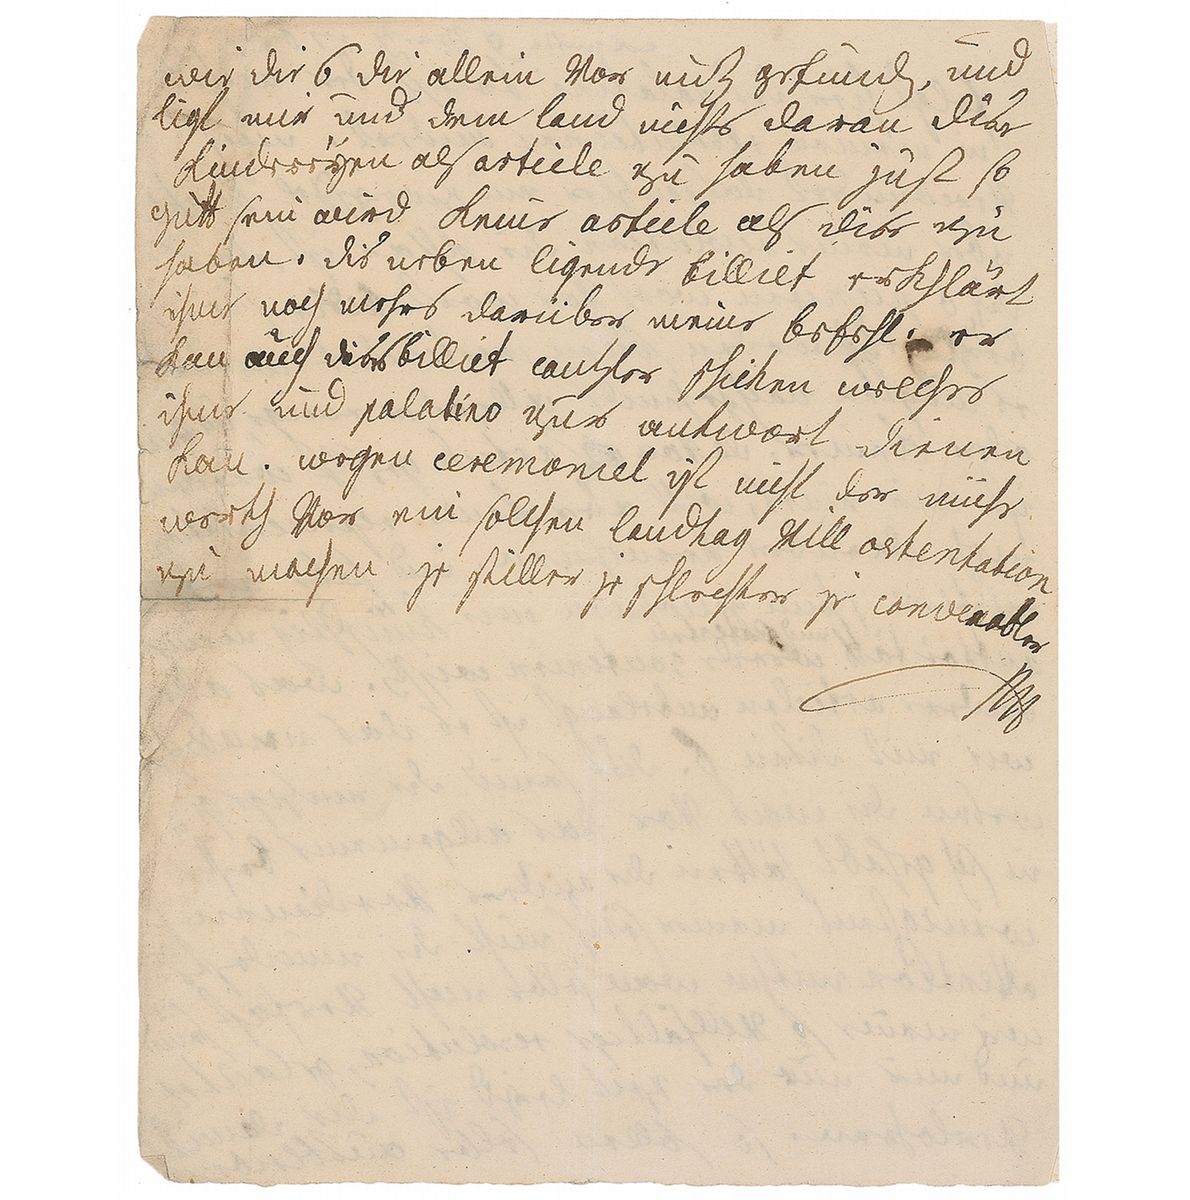 wir die 6 die allein vor nutz gefundt, und
ligt mir und dem land nichts daran dise
kindereyen als article zu haben just so
gutt sein wird keine article als dise zu
haben. dis neben ligende billiet erkhlärt
ihme noch mehrs darüber meine befehl. er
kan auch dises billiet cantzler schiken welches
ihme und palatino zur antwort dienen
kan. wegen ceremoniel ist nicht der mühe
werth vor ein solchen landtag vill ostentation
zu machen je stiller je schlechter je convenabler